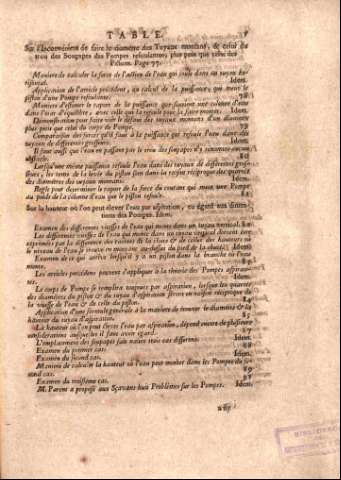 TABLE.
Sur l'inconvenient de faire le diametre des Tuyaux montans, & celui du
trou des Soupapes des Pompes refoulantes, plus petit que celui des
Pistons. Page 77.
Maniere de calculer la force de l'action de l'eau qui coule dans un tuyau ho-
risontal. Idem.
Application de l'article précédent, au calcul de la puissance, qui meut le
piston d'une Pompe refoulante. 78
Maniere d'estimer le raport de la puissance qui soutient une colonne d'eau
dans l'état d'équilibre, avec celle qui la refoule pour la faire monter. Idem.
Démonstration pour faire voir le défaut des tuyaux montans d'un diametre
plus petit que celui du corps de Pompe. 79
Comparaison des forces qu'il faut à la puissance qui refoule l'eau dans des
tuyaux de differentes grosseurs. Idem.
Il faut aussi que l'eau en passant par le trou des soupapes n'y rencontre aucun
obstacle. 80
Lorsqu'une même puissance refoule l'eau dans des tuyaux de différentes gros-
seurs, les tems de la levée du piston sont dans la raison réciproque des quarrés
des diametres des tuyaux montans. Idem.
Regle pour déterminer le raport de la force du courant qui meut une Pompe
au poids de la colonne d'eau que le piston refoule. 81
Sur la hauteur où l'on peut élever l'eau par aspiration, eu égard aux dimen-
sions des Pompes. Idem.
Examen des differentes vitesses de l'eau qui monte dans un tuyau vertical. Id.
Les differentes vitesses de l'eau qui monte dans un tuyau vertical doivent être
exprimées par la difference des racines de la chute & de celles des hauteurs où
le niveau de l'eau se trouve en montant au-dessus du pied de la chute. Idem.
Examen de ce qui arrive lorsqu'il y a un piston dans la branche où l'eau
monte.
Les articles précédens peuvent s'appliquer à la théorie des Pompes aspiran-
tes. Idem.
Le corps de Pompe se remplira toujours par aspiration, lorsque les quarrés
des diametres du piston & du tuyau d'aspiration seront en raison réciproque de
la vitesse de l'eau & de celle du piston.
Application d'une formule générale à la maniere de trouver le diametre & la
hauteur du tuyau d'aspiration. 85
La hauteur où l'on peut élever l'eau par aspiration, dépend encore de plusieurs
considérations ausquelles il faut avoir égard.
L'emplacement des soupapes fait naître trois cas differens. Idem.
Examen du premier cas. 88
Examen du second cas. Idem.
Maniere de calculer la hauteur où l'eau peut monter dans les Pompes du se-
cond cas. 89
Examen du troisième cas.
M. Parent a proposé aux Sçavans huit Problêmes sur les Pompes. Idem.